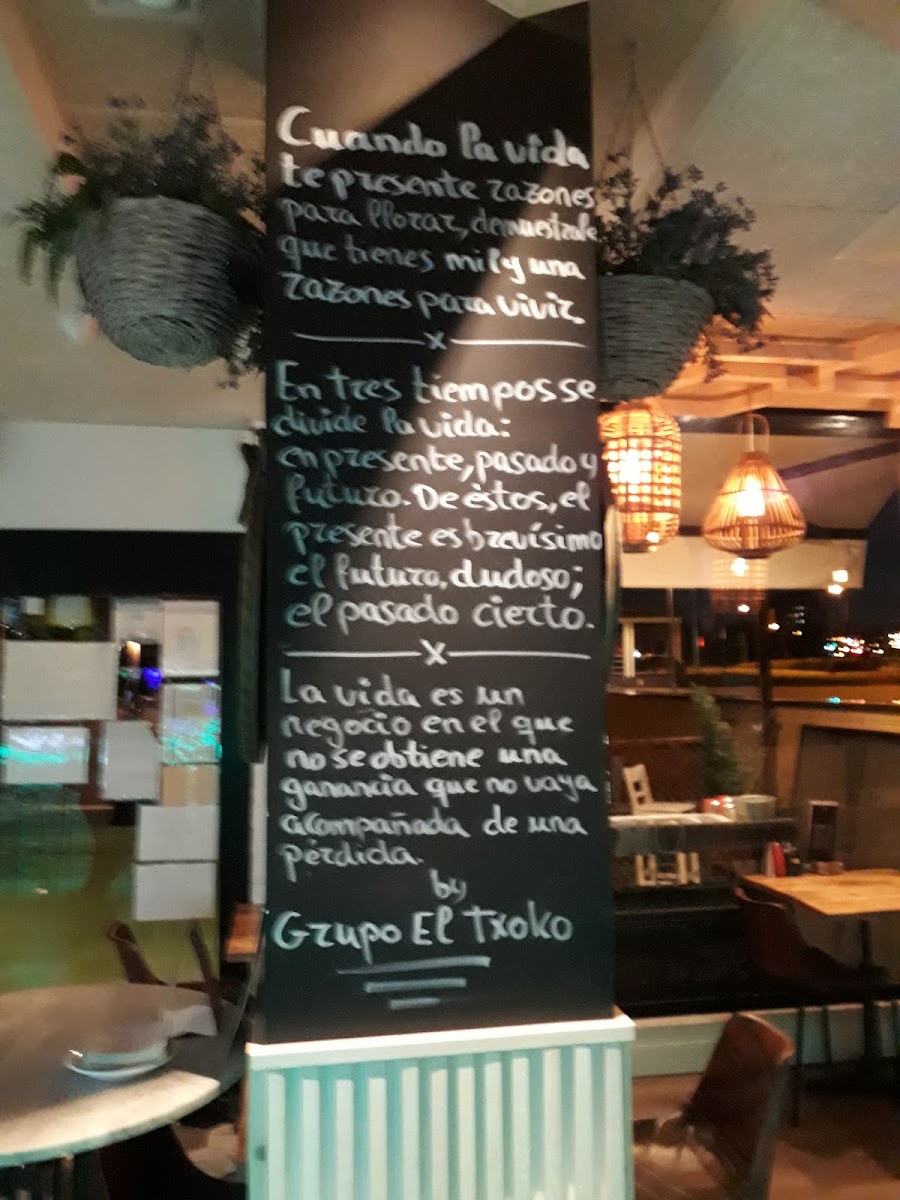 Cuando la vida
te presente razones
para llorar, demuestrale
que tienes mil y una
razones para vivir.
x
En tres tiempos se
divide la vida:
en presente, pasado y
futuro. De éstos, el
presente es brevísimo
el futuro, dudoso;
el pasado cierto.
x
La vida es un
negocio en el que
no se obtiene una
ganancia que no vaya
acompañada de una
pérdida.
by
Grupo El Txoko